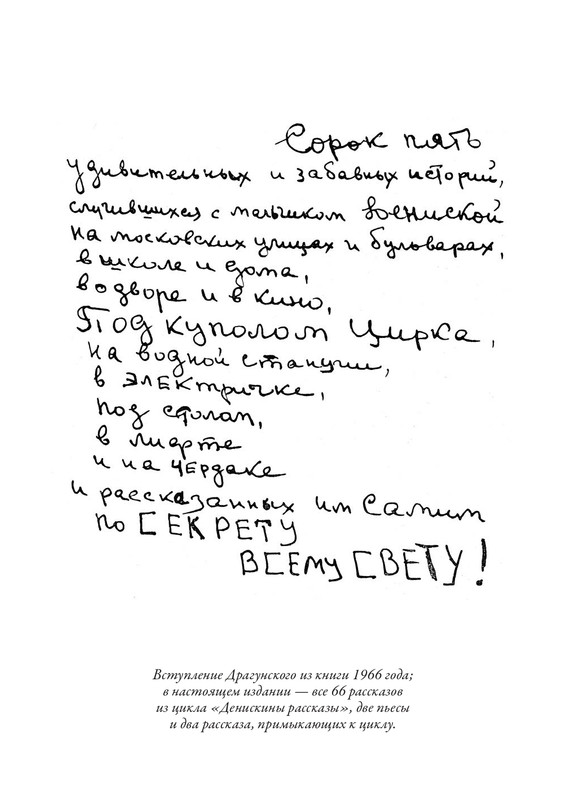 Сорок пять
удивительных и забавных историй,
случившихся с мальчиком Дениской
на московских улицах и бульварах,
в школе и дома,
во дворе и в кино,
Под куполом Цирка,
на водной станции,
в ЭЛЕКтричке,
под столом,
в лифте
и на ЧЕРдаке
и рассказанных им Самим
по СЕКРЕТУ
ВСЕМУ СВЕТУ!
Вступление Драгунского из книги 1966 года;
в настоящем издании — все 66 рассказов
из цикла «Денискины рассказы», две пьесы
и два рассказа, примыкающих к циклу.